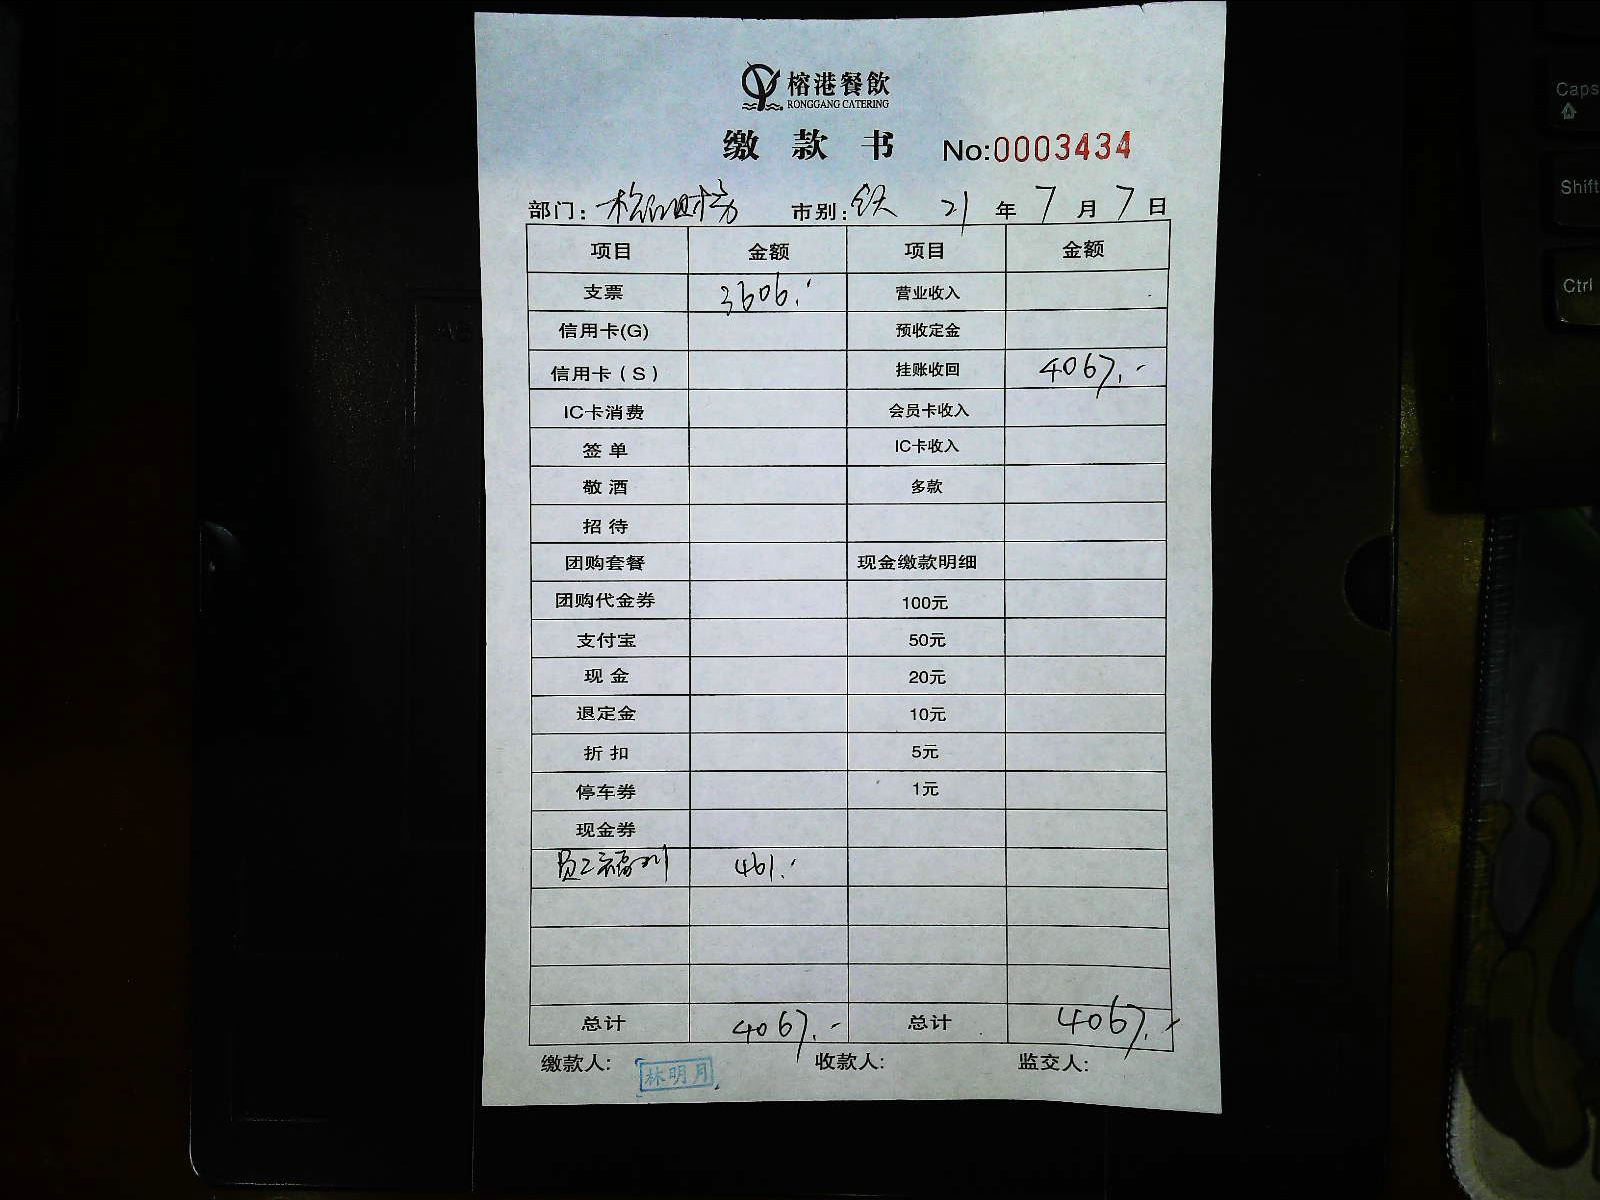 榕港餐飲
RONGGANG CATERING
缴款书 No:0003434
部门: 市别: 全天 21年7月7日
项目 金额 项目 金额
支票 3606.- 营业收入
信用卡(G) 预收定金
信用卡(S) 挂账收回 4067.-
IC卡消费 会员卡收入
签单 IC卡收入
敬酒 多款
招待
团购套餐 现金缴款明细
团购代金券 100元
支付宝 50元
现金 20元
退定金 10元
折扣 5元
停车券 1元
现金券
员工福利 461.-
总计 4067.- 总计 4067.-
缴款人: 林明月 收款人: 监交人:
Caps
Shift
Ctrl